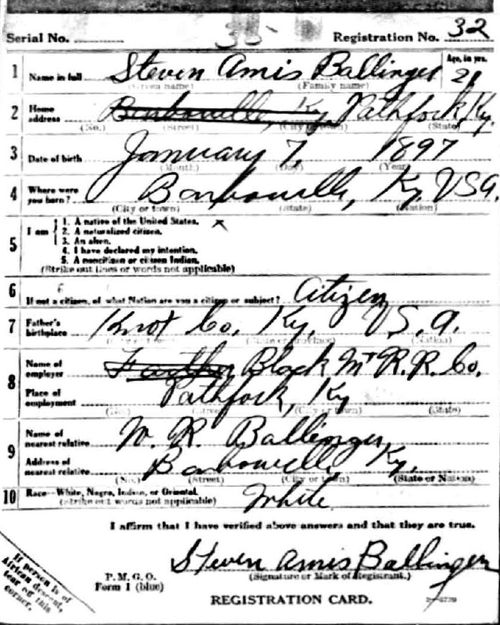 Serial No. Registration No. 32
1 Name in full Steven Amis Ballinger Age, in yrs. 21
(Given name) (Family name)
2 Home address Barbourville, Ky. Pathfork Ky.
(No.) (Street) (City or town) (State)
3 Date of birth January 7, 1897
(Month) (Day) (Year)
4 Where were you born? Barbourville, Ky. USA.
(City or town) (State) (Nation)
5 I am
1. A native of the United States. x
2. A naturalized citizen.
3. An alien.
4. I have declared my intention.
5. A noncitizen or citizen Indian.
(Strike out lines or words not applicable)
6 If not a citizen, of what Nation are you a citizen or subject? Citizen
7 Father's birthplace Knot Co. Ky. U.S.A.
8 Name of employer Black Mt R.R. Co.
Place of employment Pathfork, Ky
(No.) (Street) (City or town) (State)
9 Name of nearest relative W. R. Ballinger
Address of nearest relative Barbourville, Ky.
(No.) (Street) (City or town) (State or Nation)
10 Race—White, Negro, Indian, or Oriental. White
(Strike out words not applicable)
I affirm that I have verified above answers and that they are true.
Steven Amis Ballinger
P. M. G. O. (Signature or Mark of Registrant.)
Form 1 (blue)
REGISTRATION CARD.
If person is of
African descent,
tear off this
corner.